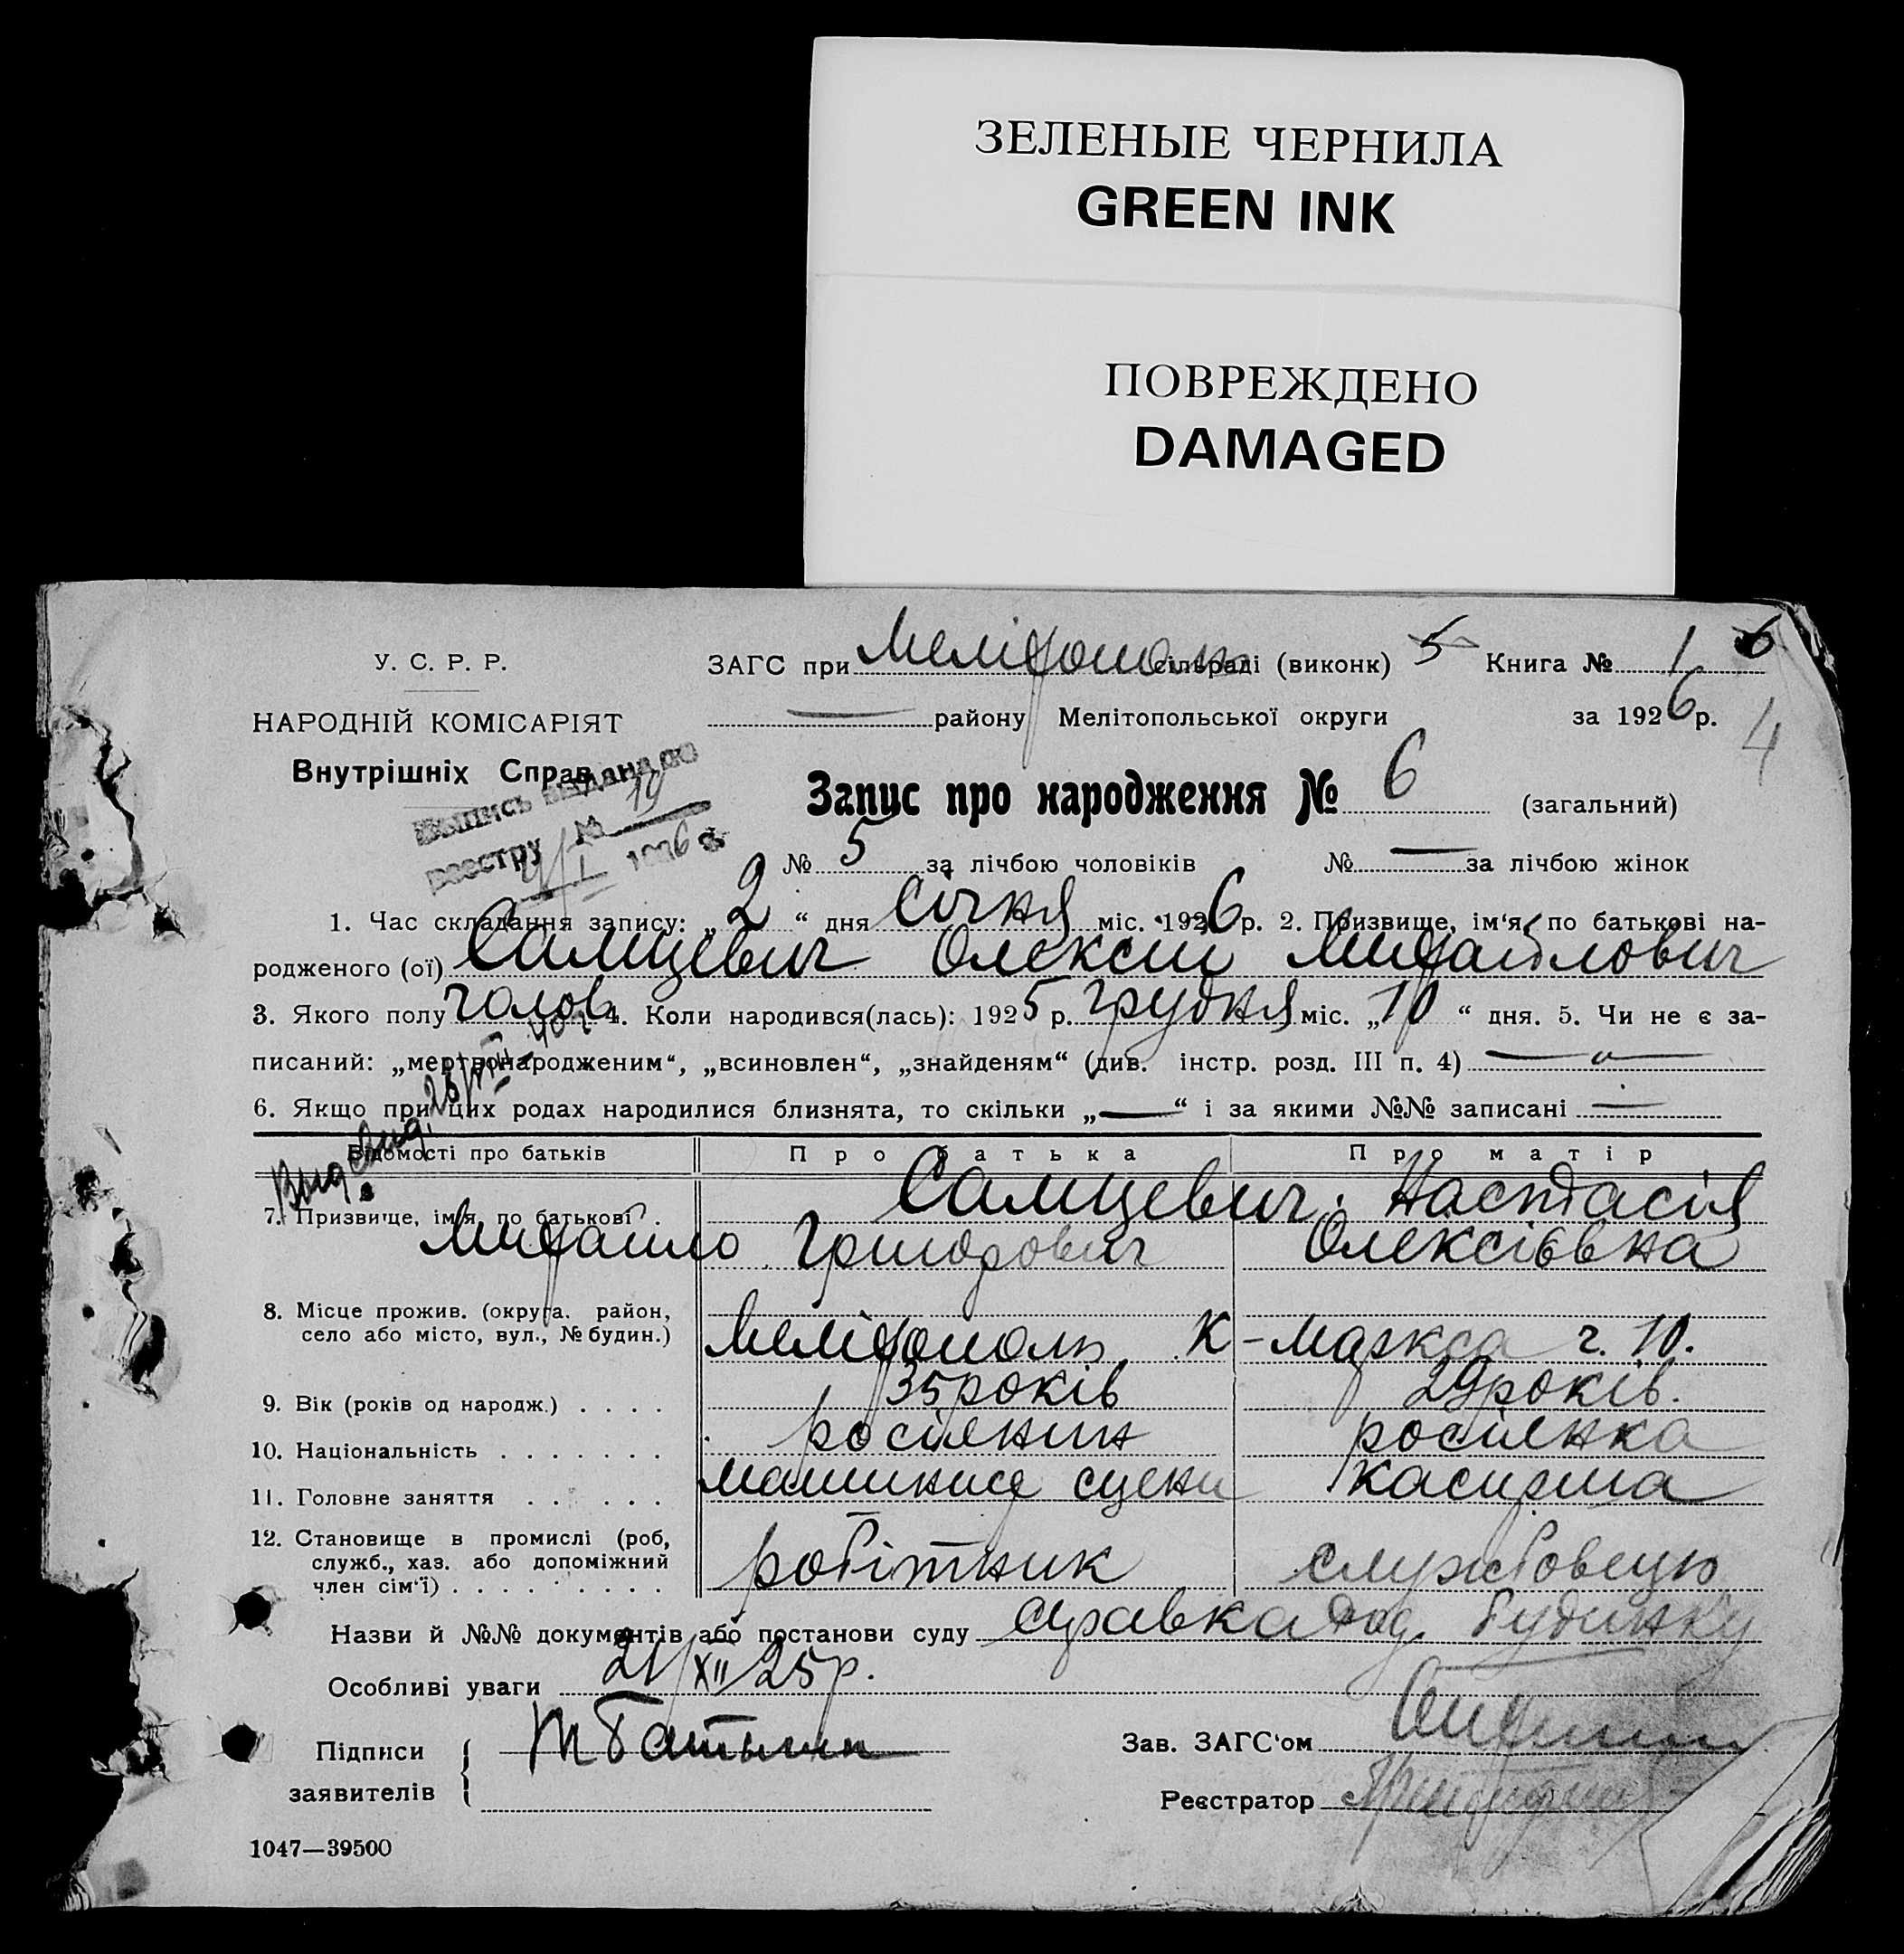 ЗЕЛЕНЫЕ ЧЕРНИЛА
GREEN INK
ПОВРЕЖДЕНО
DAMAGED
У. С. Р. Р.
НАРОДНІЙ КОМІСАРІЯТ
Внутрішніх Справ
ЗАГС при Мелітополь сільраді (виконк) 5 Книга № 1 6
— району Мелітопольської округи за 1926 р. 4
Выпись выдана по
реестру № 19
1926 г.
Запис про народження № 6 (загальний)
№ 5 за лічбою чоловіків № — за лічбою жінок
1. Час складання запису: „ 2 “ дня Січня міс. 1926 р. 2. Призвище, ім‘я, по батькові на-
родженого (ої) Самцевич Олексій Михайлович
3. Якого полу чолов. 4. Коли народився(лась): 1925 р. Грудня міс. „ 10 “ дня. 5. Чи не є за-
писаний: „мертвонародженим“, „всиновлен“, „знайденям“ (див. інстр. розд. III п. 4) —
6. Якщо при цих родах народилися близнята, то скільки „ — “ і за якими №№ записані —
Відомості про батьків Про батька Про матір
7. Призвище, ім‘я, по батькові . Самцевич. Настасія
Михайло Григорович Олексіївна
8. Місце прожив. (округа. район,
село або місто, вул., № будин.) Мелітополь К-Маркса ч. 10.
9. Вік (років од народж.) . . . . 35 років 29 років.
10. Національність . . . . . . . росіянин росіянка
11. Головне заняття . . . . . . машинист сцени касирша
12. Становище в промислі (роб,
служб., хаз. або допоміжний
член сім‘ї) . . . . . . . . . . робітник службовець
Назви й №№ документів або постанови суду справка под. будинку
Особливі уваги 21/XII 25 р.
Підписи
заявителів
Зав. ЗАГС‘ом
Реєстратор
1047—39500